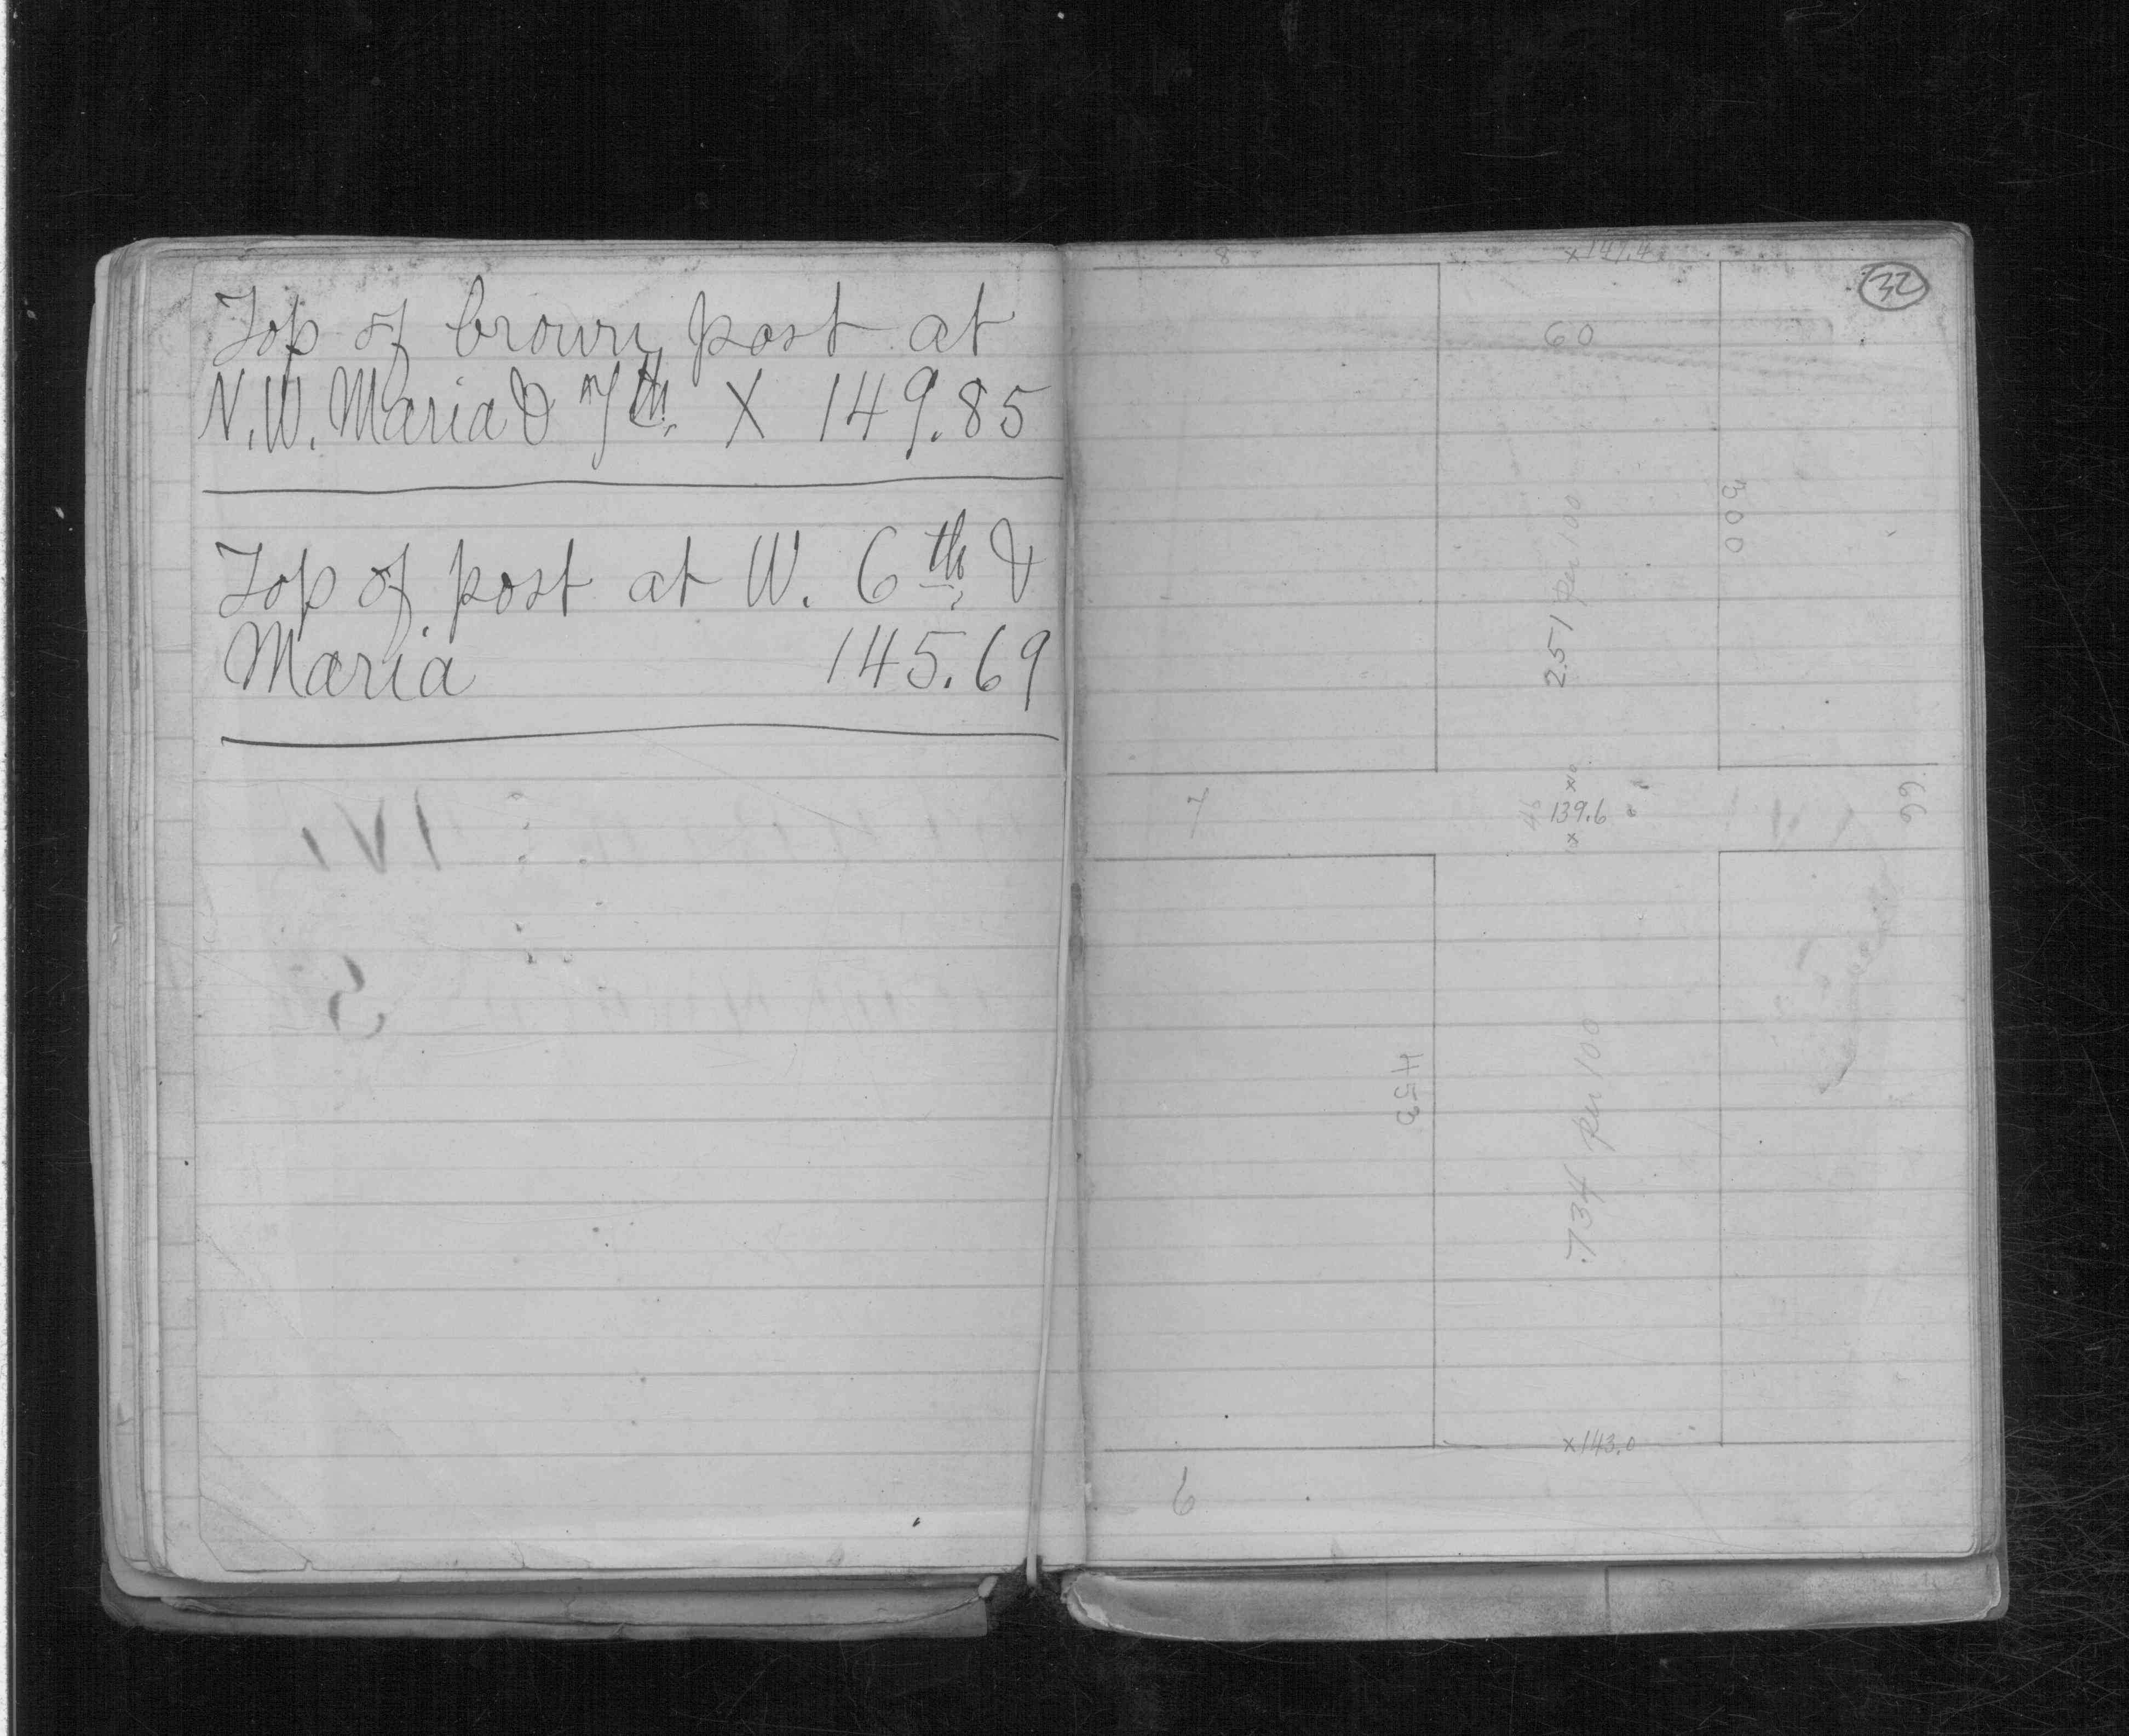 Top of brown post at
N.W. Maria & 7th. X 149.85
Top of post at W. 6th &
Maria 145.69
32
8
x 147.4
60
300
2.51 per 100
7
139.6
66
453
.734 per 100
x 143.0
6